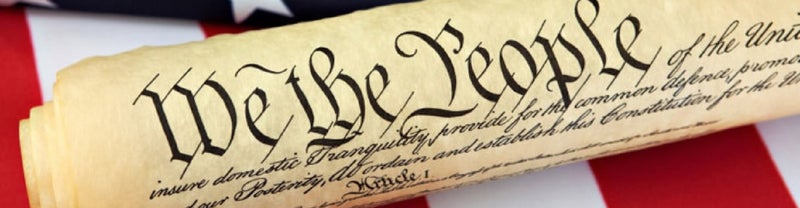 We the People of the Unit
insure domestic Tranquility, provide for the common defence, promo
our Posterity, do ordain and establish this Constitution for the Un
Article I